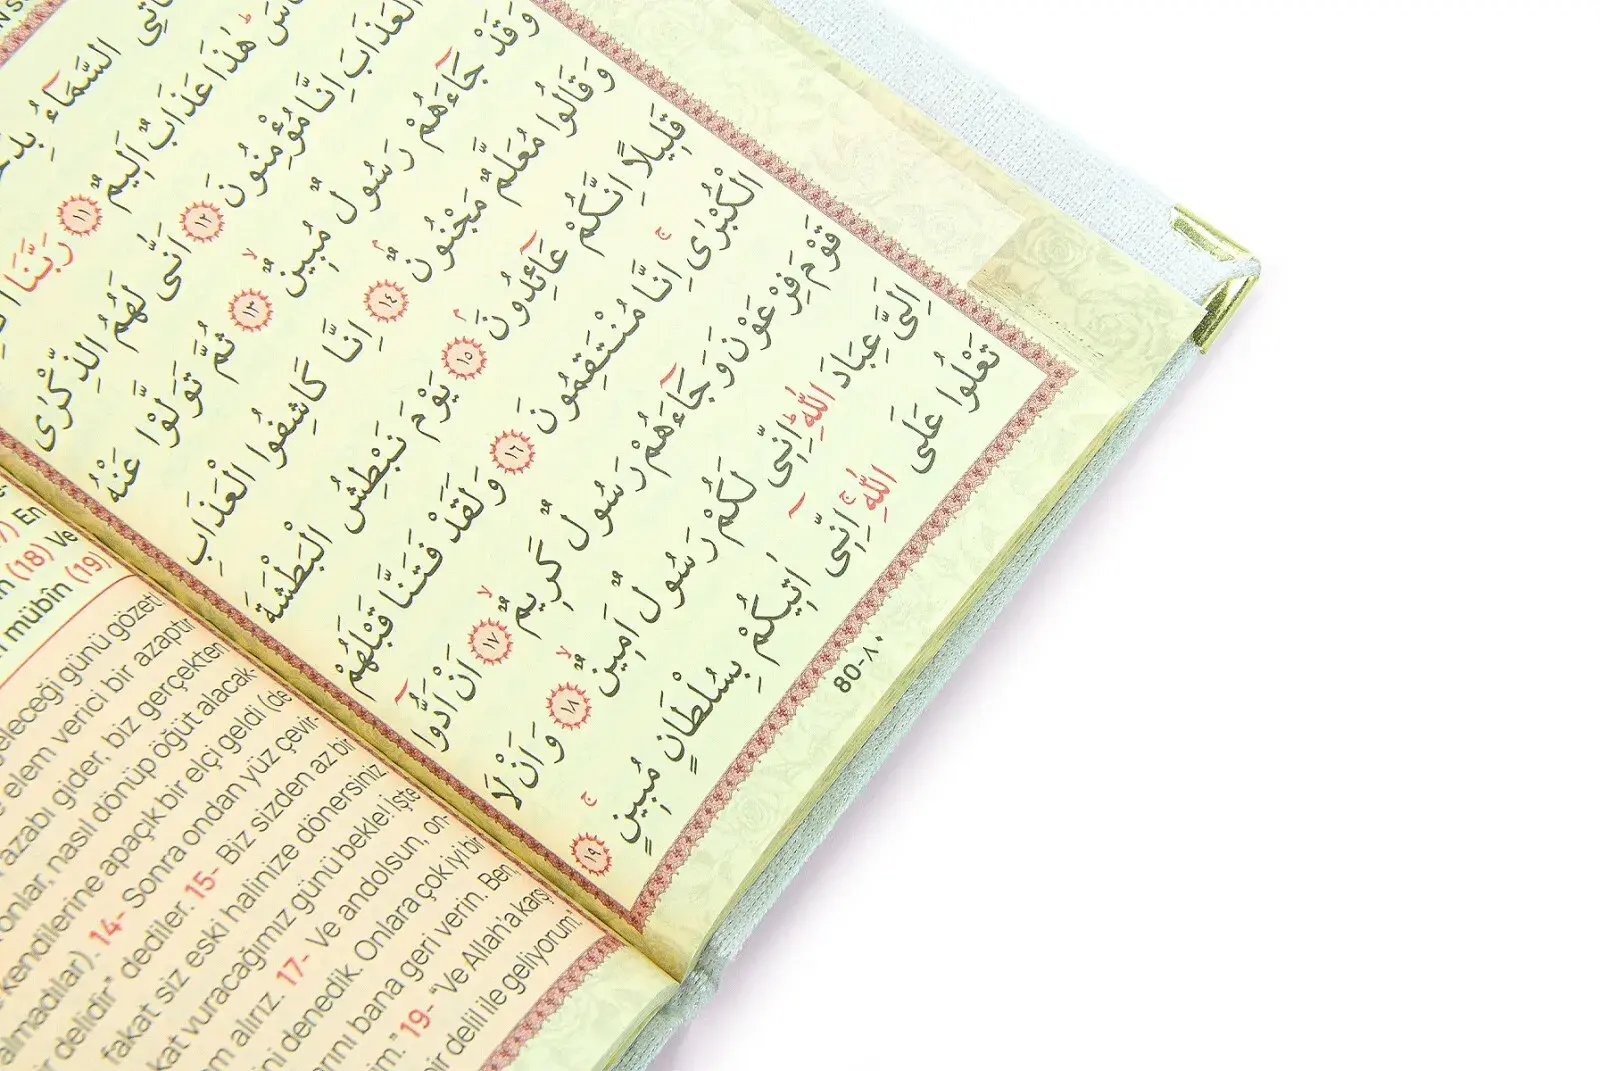 تَأْتِي السَّمَاءُ
هٰذَا عَذَابٌ اَلِيمٌ ١١ رَبَّنَا
الْعَذَابَ اِنَّا مُؤْمِنُونَ ١٢ اَنّٰى لَهُمُ الذِّكْرٰى
وَقَدْ جَاءَهُمْ رَسُولٌ مُبِينٌ ١٣ ثُمَّ تَوَلَّوْا عَنْهُ
وَقَالُوا مُعَلَّمٌ مَجْنُونٌ ١٤ اِنَّا كَاشِفُوا الْعَذَابِ
قَلِيلًا اِنَّكُمْ عَائِدُونَ ١٥ يَوْمَ نَبْطِشُ الْبَطْشَةَ
الْكُبْرٰى اِنَّا مُنْتَقِمُونَ ١٦ وَلَقَدْ فَتَنَّا قَبْلَهُمْ
قَوْمَ فِرْعَوْنَ وَجَاءَهُمْ رَسُولٌ كَرِيمٌ ١٧ اَنْ اَدُّوا
اِلَيَّ عِبَادَ اللّٰهِ اِنِّي لَكُمْ رَسُولٌ اَمِينٌ ١٨ وَاَنْ لَا
تَعْلُوا عَلَى اللّٰهِ اِنِّي اٰتِيكُمْ بِسُلْطَانٍ مُبِينٍ ١٩
80-٨٠
En
(18) Ve
mübîn (19)
geleceği günü gözetl
elem verici bir azaptır
azabı gider, biz gerçekten
onlar, nasıl dönüp öğüt alacak-
kendilerine apaçık bir elçi geldi (de
almadılar). 14- Sonra ondan yüz çevir-
delidir" dediler. 15- Biz sizden az bir
fakat siz eski halinize dönersiniz
vuracağımız günü bekle! İşte
alırız. 17- Ve andolsun, on-
denedik. Onlara çok iyi bir
bana geri verin. Ben,
19- "Ve Allah'a karşı
bir delil ile geliyorum".